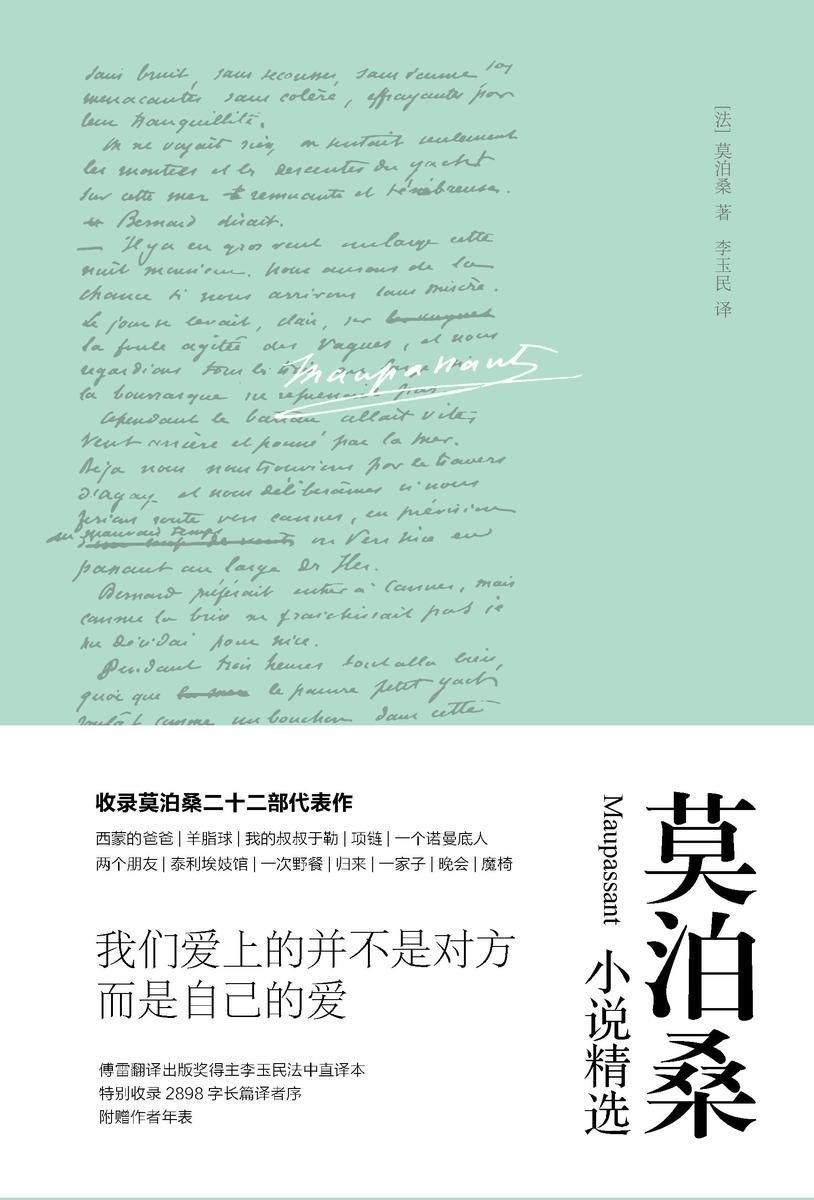 sans bruit, sans secousses, sans écume
menaçantes sans colère, effrayantes par
leur tranquillité.
On ne voyait rien, on sentait seulement
les montées et les descentes du yacht
sur cette mer remuante et ténébreuse.
Bernard disait.
— Il y a eu gros vent au large cette
nuit monsieur. Nous aurons de la
chance si nous arrivons sans misère.
Le jour se levait, clair, sur
la foule agitée des vagues, et nous
regardions tous
la bourrasque ne reprenait pas.
Maupassant
Cependant le bateau allait vite,
vent arrière et poussé par la mer.
Déjà nous nous trouvions par le travers
d'Agay, et nous délibérâmes si nous
ferions route vers Cannes, en prévision
du mauvais temps
ou vers Nice en
passant au large des Iles.
Bernard préférait entrer à Cannes, mais
comme la brise ne fraichissait pas je
me décidai pour Nice.
Pendant trois heures tout alla bien,
quoi que le pauvre petit yacht
roulât comme un bouchon dans cette
[法] 莫泊桑 著 李玉民 译
收录莫泊桑二十二部代表作
西蒙的爸爸 | 羊脂球 | 我的叔叔于勒 | 项链 | 一个诺曼底人
两个朋友 | 泰利埃妓馆 | 一次野餐 | 归来 | 一家子 | 晚会 | 魔椅
我们爱上的并不是对方
而是自己的爱
傅雷翻译出版奖得主李玉民法中直译本
特别收录 2898 字长篇译者序
附赠作者年表
莫泊桑
Maupassant
小说精选